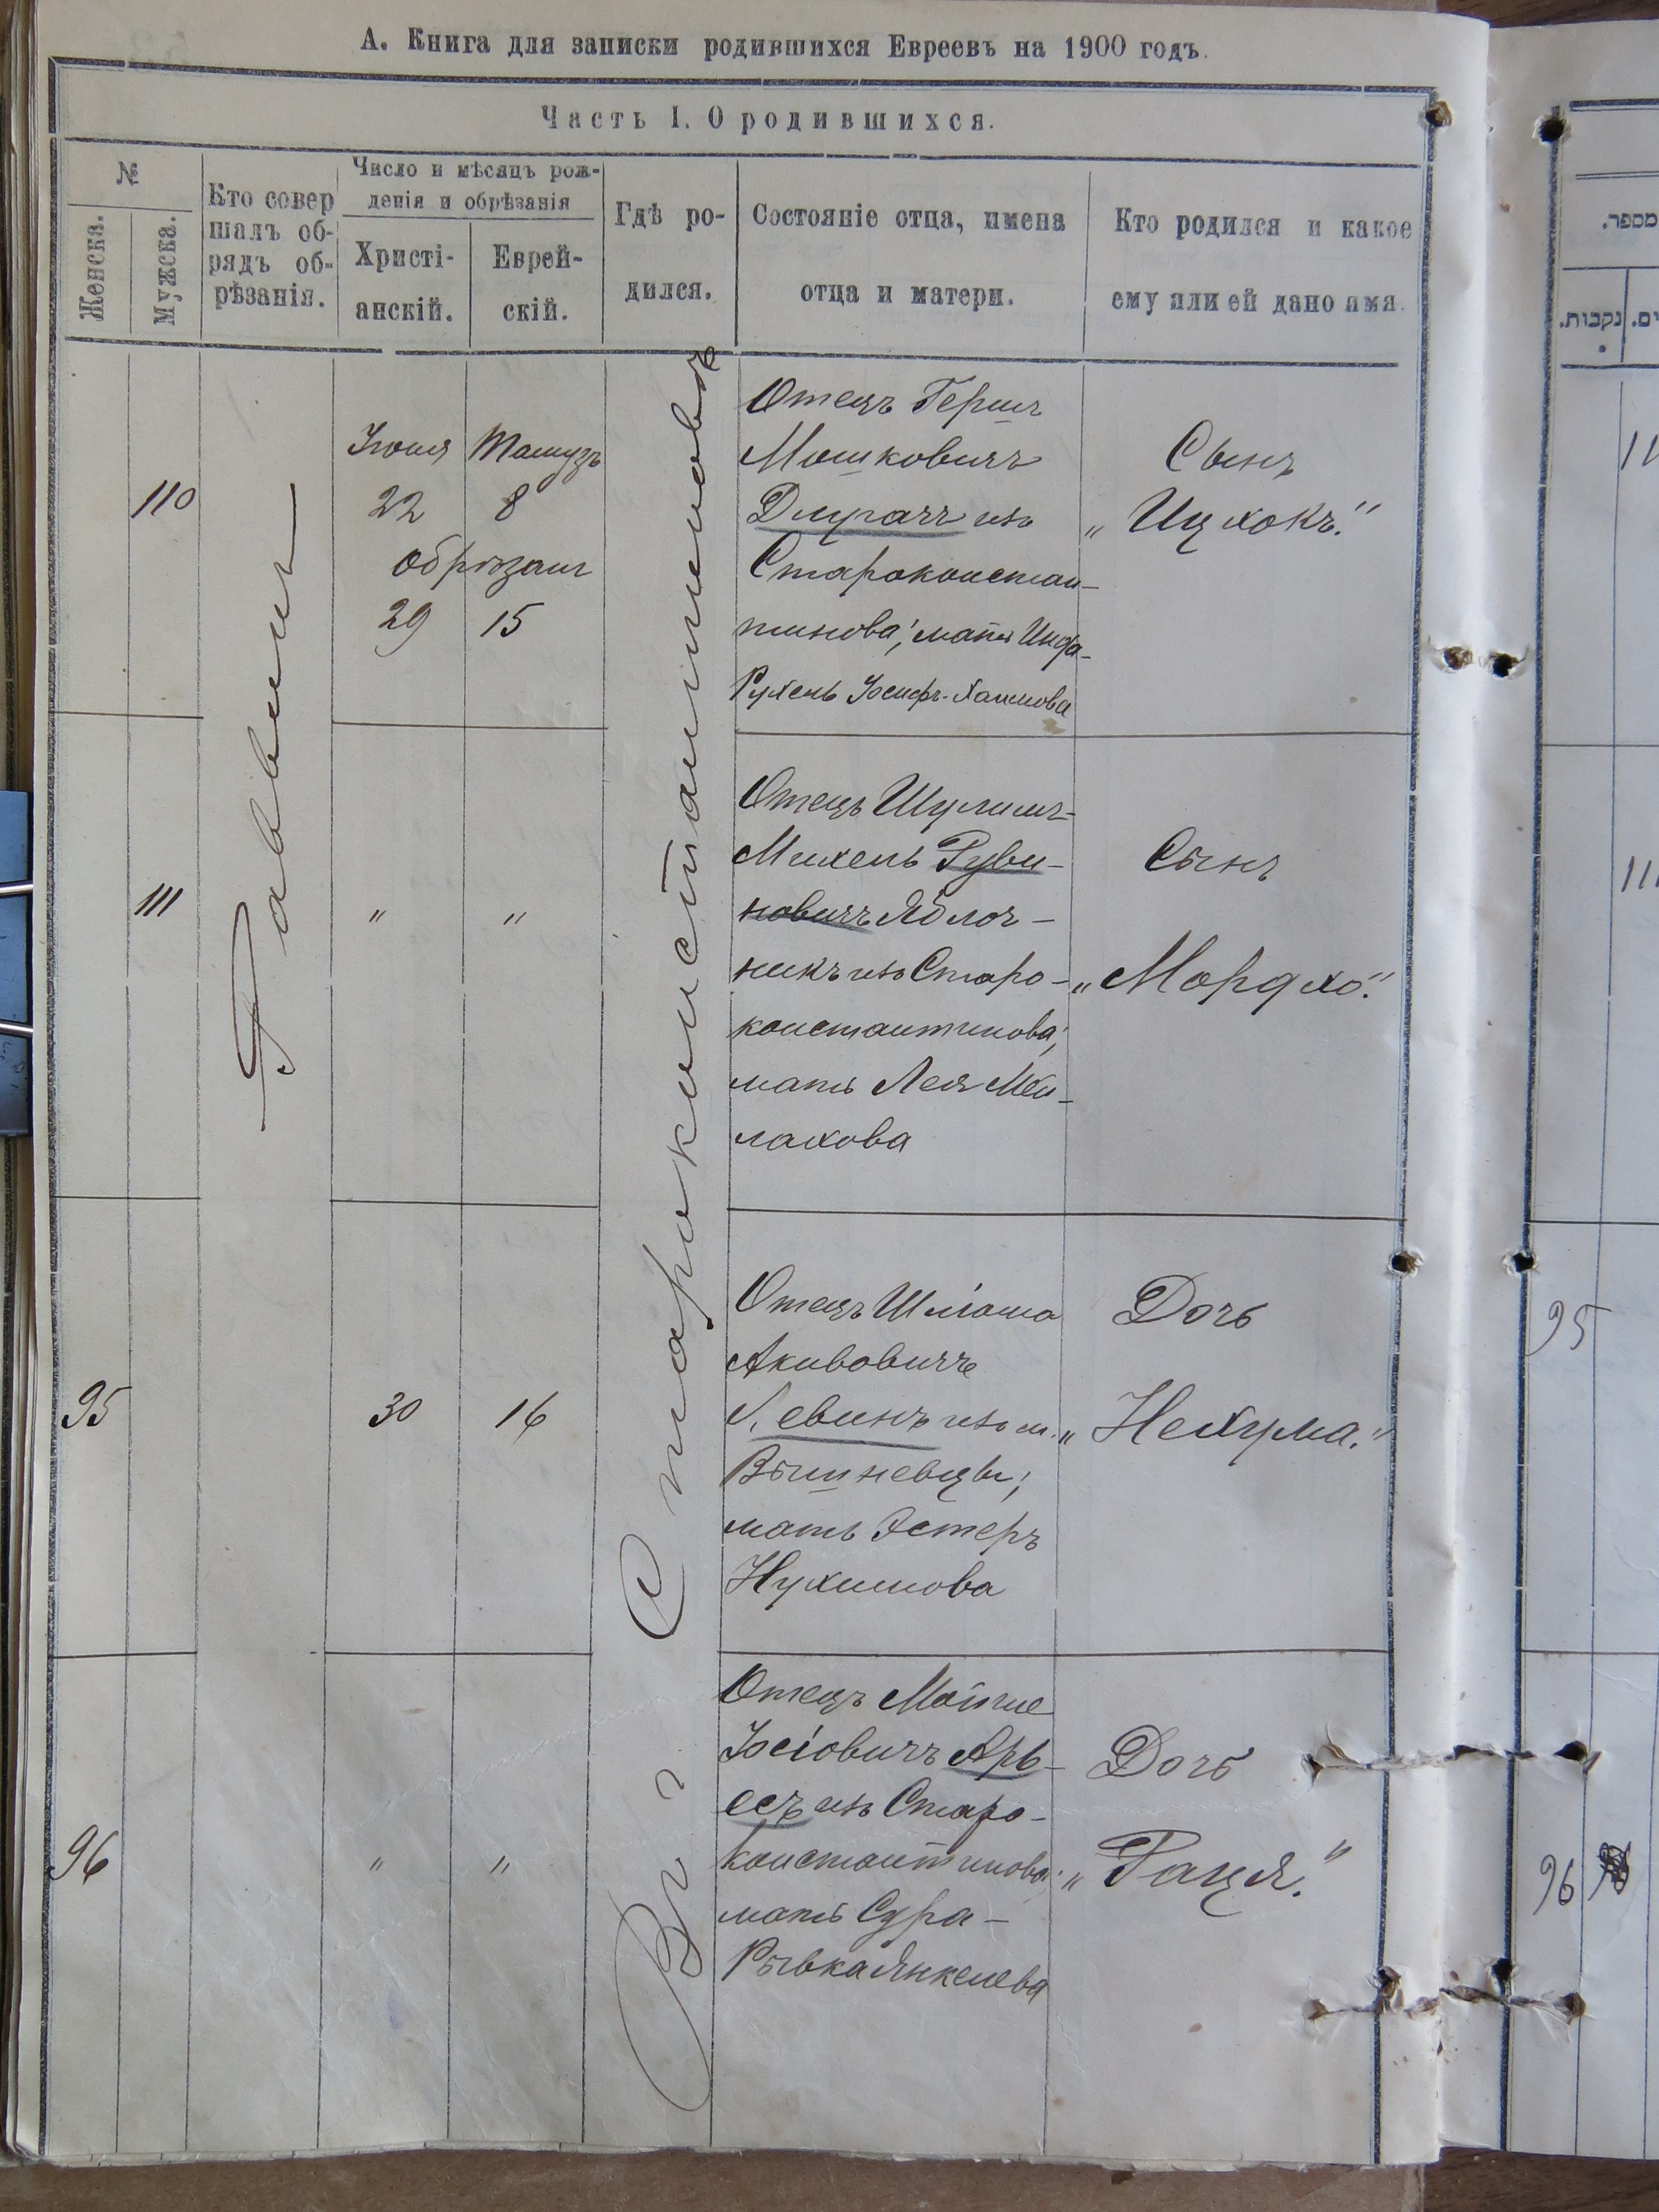 А. Книга для записки родившихся Евреевъ на 1900 годъ.
Часть I. О родившихся.
№
Женска.
Мужска.
Кто совер
шалъ об-
рядъ об-
рѣзанія.
Число и мѣсяцъ рож-
денія и обрѣзанія
Христі-
анскій.
Еврей-
скій.
Гдѣ ро-
дился.
Состояніе отца, имена
отца и матери.
Кто родился и какое
ему или ей дано имя.
Раввинъ
Въ г. Староконстантиновѣ
110
Іюня Тамузъ
22 8
обрѣзанъ
29 15
Отецъ Гершъ
Мошковичъ
Длугачъ изъ
Староконстан-
тинова; мать
Рухель Іосифъ-Хаимова
Сынъ
„Ицхокъ."
111
" "
Отецъ Шулимъ-
Михель Руви-
новичъ Яблоч-
никъ изъ Старо-
константинова;
мать Лея Мей-
лахова
Сынъ
„Мордхо."
95
30 16
Отецъ Шліома
Акивовичъ
Левинъ изъ м.
Вышневцы;
мать Эстеръ
Нухимова
Дочь
„Нехума."
96
" "
Отецъ Мотие
Іосіовичъ Арь-
есъ изъ Старо-
константинова;
мать Сура-
Рывка Янкелева
Дочь
„Гаця."
מספר.
נקבות.
11
111
95
96